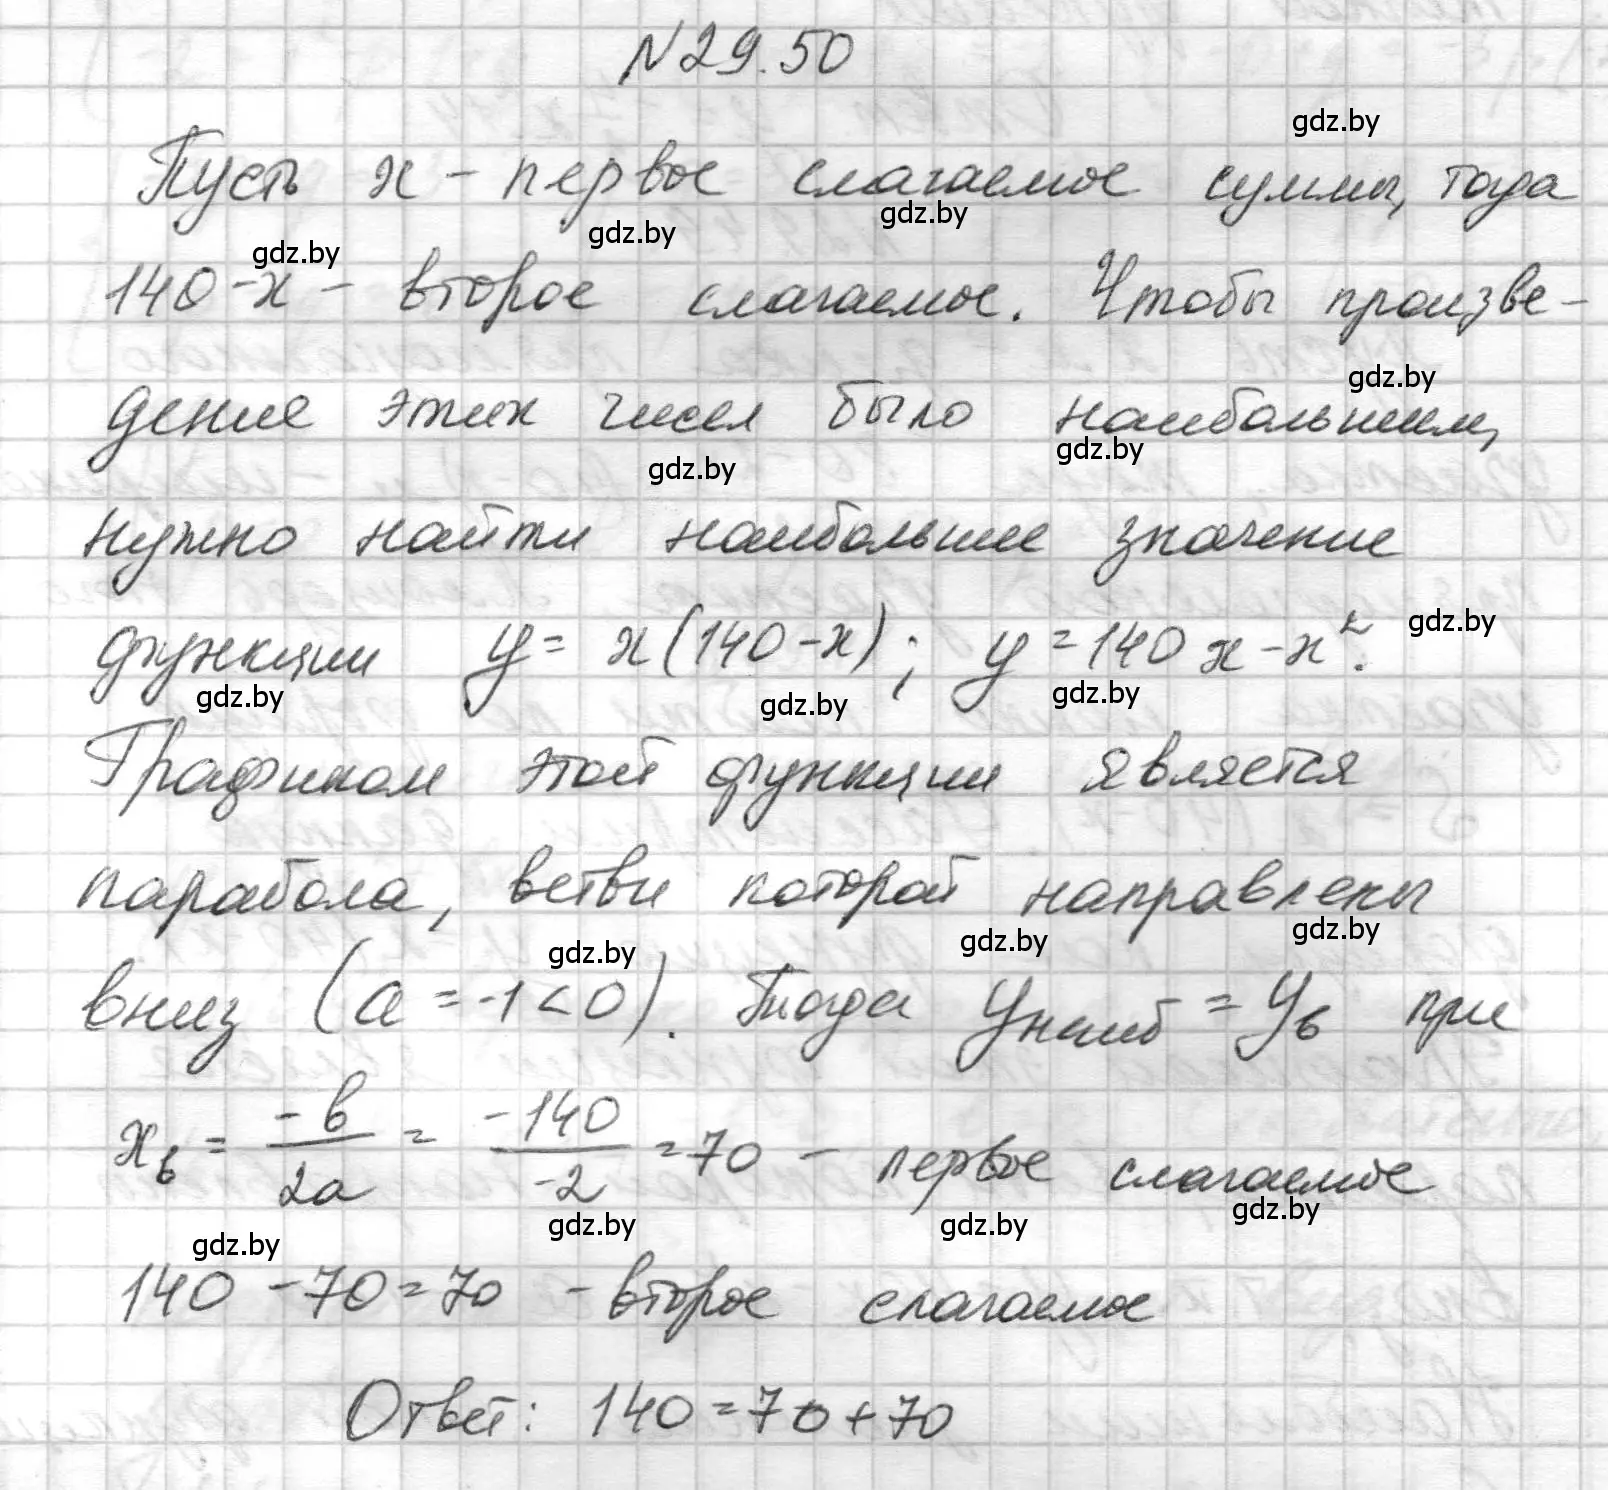 №29.50
gdz.by
Пусть x – первое слагаемое суммы, тогда
gdz.by gdz.by gdz.by
140-x – второе слагаемое. Чтобы произве-
gdz.by
дение этих чисел было наибольшим,
gdz.by gdz.by
нужно найти наибольшее значение
функции y = x(140-x); y = 140x - x².
gdz.by
gdz.by gdz.by gdz.by
Графиком этой функции является
парабола, ветви которой направлены
gdz.by gdz.by gdz.by
вниз (a = -1 < 0). Тогда yнаиб = yв при
xв = -b/2a = -140/-2 = 70 – первое слагаемое
gdz.by gdz.by gdz.by gdz.by
140 - 70 = 70 – второе слагаемое
Ответ: 140 = 70 + 70